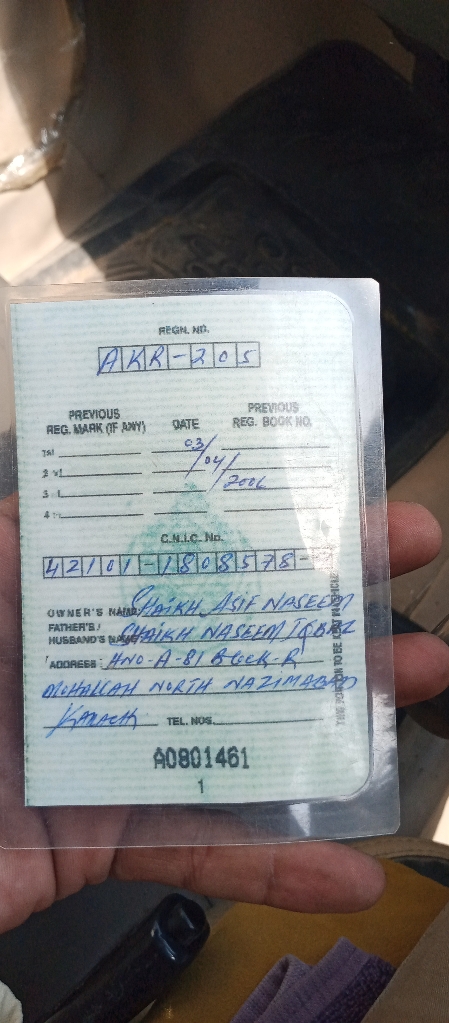 REGN. NO.
AKR-205
PREVIOUS REG. MARK (IF ANY) DATE PREVIOUS REG. BOOK NO.
1st 03/
2 04/
3 2006
4
C.N.I.C. No.
42101-1808578-
OWNER'S NAME SHAIKH ASIF NASEEM
FATHER'S/
HUSBAND'S NAME SHAIKH NASEEM
ADDRESS: A-81 BLOCK-R
MOHALLAH NORTH NAZIMABAD
KARACHI TEL. NOS.
A0801461
1